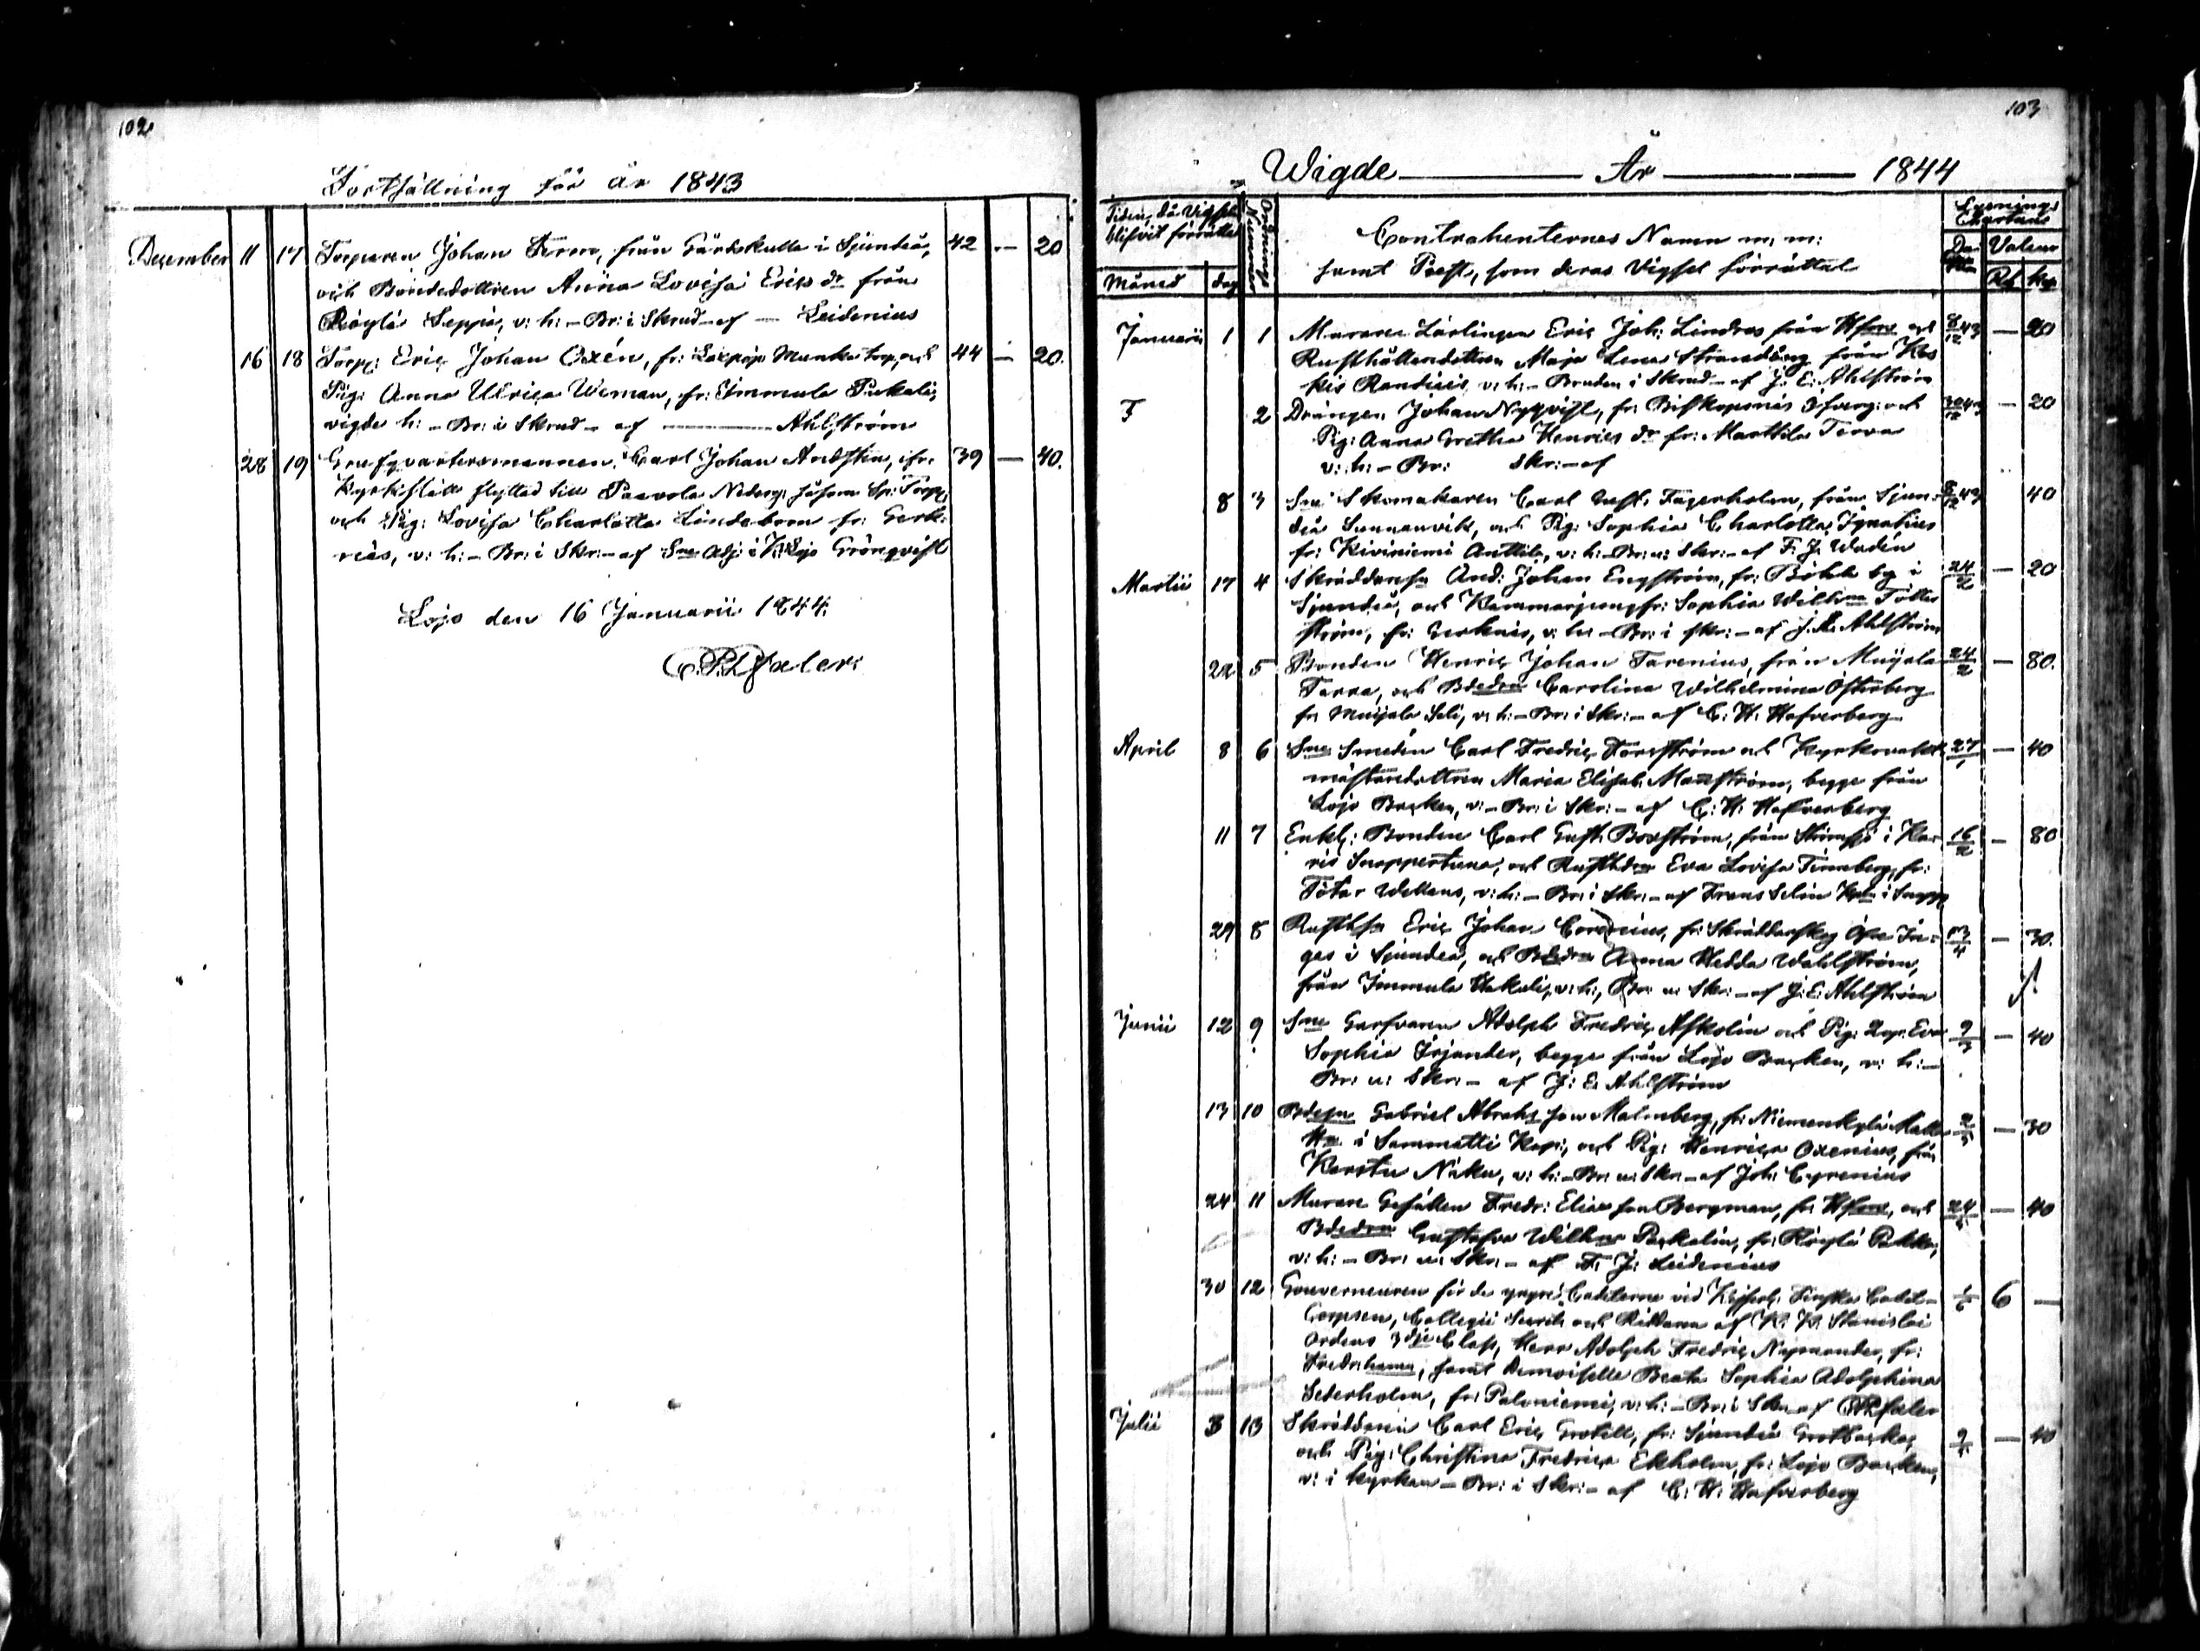 102
Fortsättning för år 1843
December 11 17 Torparen Johan Term, från Gårdskulla i Sjundeå, 42 — 20
och Bondedottren Anna Lovisa Erics dr från
Röylä Seppä, v: h: – Br: i Skrud – af — Leidenius
16 18 Torp: Eric Johan Oxén, fr: Munka torp, och 44 — 20.
Pig: Anna Ulrica Weman, fr: Immula Pukala,
vigde h: – Br: i Skrud – af — Ahlström
28 19 Carl Johan Andstén, fr: 39 — 40.
Kyrkslätt flyttad till Paavola såsom Sp: Torp:
och Pig: Lovisa Charlotta Lindebom fr: Gerk-
näs, v: h: – Br: i Skr: – af Sne Adj: i K: Lojo Grönqvist
Lojo den 16 Januarii 1844.
103
Wigde — År — 1844
Tiden, då Vigseln
blifvit förrättad
Månad dag
Ordnings Nummer
Contrahenternes Namn m: m:
samt Prest, som deras Vigsel förrättat
Lysnings
Chartans
Datum Valeur
Rub. kop.
Januarii 1 1 Murare Lärlingen Eric Joh: Lindros från Hfors och 8/12 43 — 20
Rusthållaredottren Maja Lena Strandberg från
v: h: – Bruden i Skrud – af J: E: Ahlström
2 Drängen Johan Nyqvist, fr: Biskopsnäs och 30/12 43 — 20
Pig: Anna Gretha Henrics dr fr: Marttila Terva
v: h: – Br: Skr: – af
8 3 Sne Skomakaren Carl Gust: Fagerholm, från Sjun- 8/12 43 40
deå Sunnanvik, och Pig: Sophia Charlotta Ignatius
fr: Kiviniemi Anttila, v: h: – Br: u: Skr: – af F: J: Wadén
Martii 17 4 Skräddaren And: Johan Engström, fr: Böhle by i 24/2 — 20
Sjundeå, och Kammarjungfr: Sophia Wilhna
ström, fr: Gerknäs, v: h: – Br: i skr: – af J: E: Ahlström
22 5 Bonden Henric Johan Tarenius, från Muijala 24/2 — 80.
Tarra, och Bdedrn Carolina Wilhelmina Österberg
fr: Muijala Seli, v: h: – Br: i Skr: – af C: H: Hafverberg
April 8 6 Sne Smeden Carl Fredric Forsström och Kyrkovakt- 27/1 — 40
mästaredottren Maria Elisab: Manström, begge från
Lojo Backen, v: – Br: i Skr: – af C: H: Hafverberg
11 7 Enkl: Bonden Carl Gust: Boxström, från Strömsö i Ka- 16/2 — 80
ris Snappertuna, och Rusthdrn Eva Lovisa Finnberg, fr:
Tötar Wellans, v: h: – Br: i Skr: – af Frans Selin Kpln i Snapp:
29 8 Rusthsn Eric Johan fr: Skräddarskog Öfre In- 13/4 — 30.
gas i Sjundeå, och Bdedrn Anna Hedda Wahlström,
från Immula Hakula, v: h:, Br: u: Skr: – af J: E: Ahlström
Junii 12 9 Sne Garfvaren Adolph Fredric Askolin och Pig: Eva 9/3 — 40
Sophia Irjander, begge från Lojo Backen, v: h: –
Br: u: Skr: – af J: E: Ahlström
13 10 Bdesn Gabriel Abrahs son Malmberg, fr: Niemenkylä 2/5 — 30
i Sammatti Kap:, och Pig: Henrica Oxenius, från
Karstu Näku, v: h: – Br: u: Skr: – af Joh: Cyrenius
24 11 Murare Gesällen Fredr: Elias son Bergman, fr: Hfors, och — 40
Bdedrn Gustafva Wilhna Packalin, fr: Röylä Pekka,
v: h: – Br: u: Skr: – af F: J: Leidenius
30 12 Gouverneuren för de yngre Cadetterne vid Kejserl: Finska Cadet- 1/6 6 —
Corpsen, Collegii Secrit: och Riddaren af K: K: Stanislai
Ordens 3dje Class, Herr Adolph Fredric Nymander, fr:
Fredrhamn, samt Demoiselle Beata Sophia Adolphina
Sederholm, fr: Paloniemi, v: h: – Br: i Skr: af
Julii 3 13 Skräddaren Carl Eric Grotell, fr: Sjundeå Grotbacka, — 40
och Pig: Christina Fredrica Ekholm, fr: Lojo Backen,
v: i kyrkan – Br: i Skr: – af C: H: Hafverberg